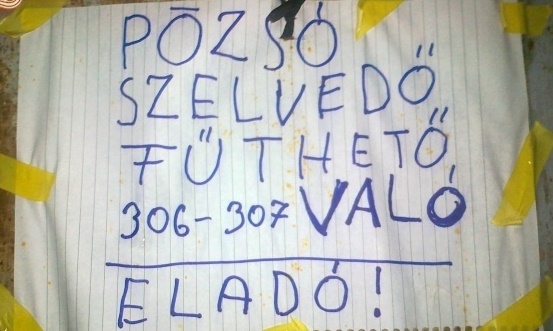 PŌZSÓ
SZELVEDŐ
FŰTHETŐ
306-307 VALÓ
ELADÓ!